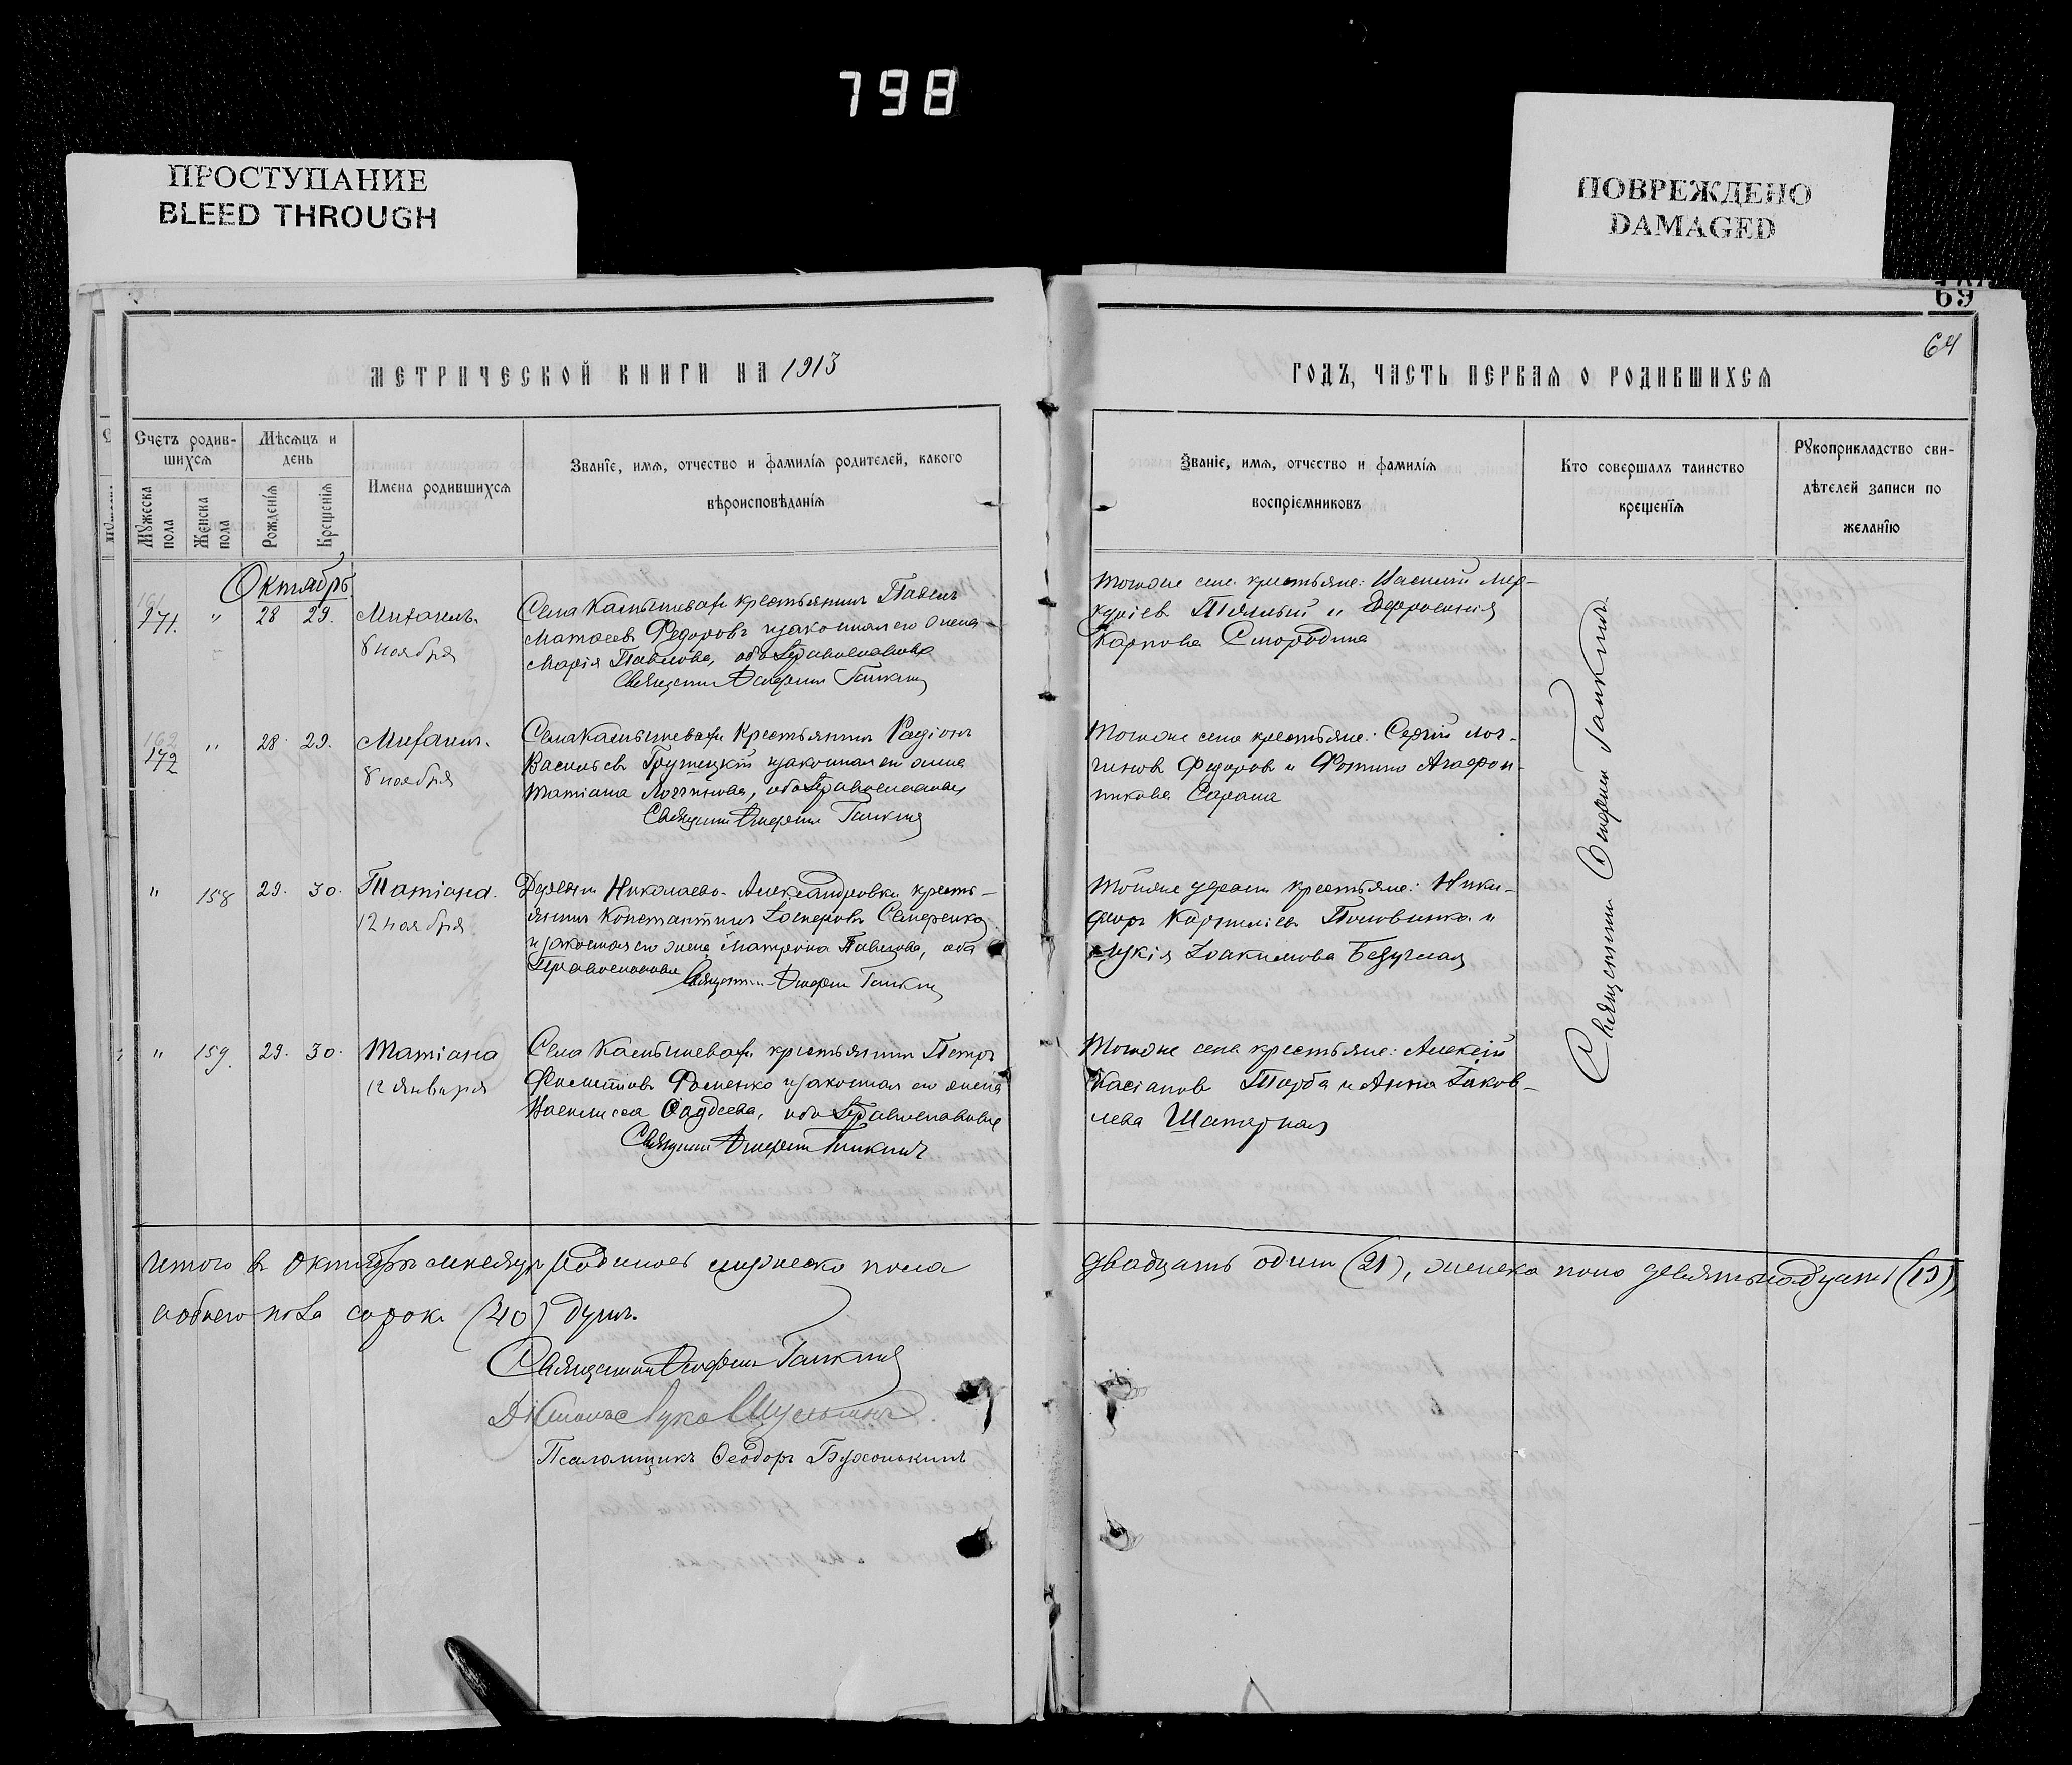 798
ПРОСТУПАНИЕ
BLEED THROUGH
ПОВРЕЖДЕНО
DAMAGED
69
64
МЕТРИЧЕСКОЙ КНИГИ НА 1913
ГОДЪ, ЧАСТЬ ПЕРВАЯ О РОДИВШИХСЯ
Счетъ родив-
шихся
Мѣсяцъ и
день
Мужеска
пола
Женска
пола
Рожденія
Крещенія
Имена родившихся
Званіе, имя, отчество и фамилія родителей, какого
вѣроисповѣданія
Званіе, имя, отчество и фамилія
воспріемниковъ
Кто совершалъ таинство
крещенія
Рукоприкладство сви-
дѣтелей записи по
желанію
Октябрь
171. " 28 29. Михаилъ.
8 ноября
Села крестьянинъ Павелъ
Федоровъ и законная его жена
Марія Павлова, оба Православные
Священникъ Галкинъ
Тогоже села крестьяне: Василій Мер-
куріевъ и Евфросинія
Карпова Смородина
172 " 28 29. Михаилъ.
8 ноября
Села крестьянинъ Родіонъ
Васильевъ и законная его жена
Татіана Логгинова, оба Православные
Священникъ Галкинъ
Тогоже села крестьяне: Сергій Лог-
гиновъ Федоровъ и Агафон-
никова
" 158 29. 30. Татіана.
12 ноября
Деревни Николаево-Александровки кресть-
янинъ Константинъ Семеренко
и законная его жена Матрона Павлова, оба
Православные Священникъ Галкинъ
Тойже деревни крестьяне: Ники-
форъ Корниліевъ Половинка и
Лукія Іоакимова
" 159. 29. 30. Татіана
12 января
Села крестьянинъ Петръ
Филипповъ Фоменко и законная его жена
Василисса Фаддеева, оба Православные
Священникъ Галкинъ
Тогоже села крестьяне: Алексій
Касіановъ Торба и Анна Іаков-
лева
Священникъ Галкинъ
Итого в Октябрѣ мѣсяцѣ родилось мужеско пола
двадцать одинъ (21), женска пола девятьнадцать (19)
а обоего пола сорокъ (40) душъ.
Священникъ Галкинъ
Діаконъ Лука
Псаломщикъ Ѳеодоръ